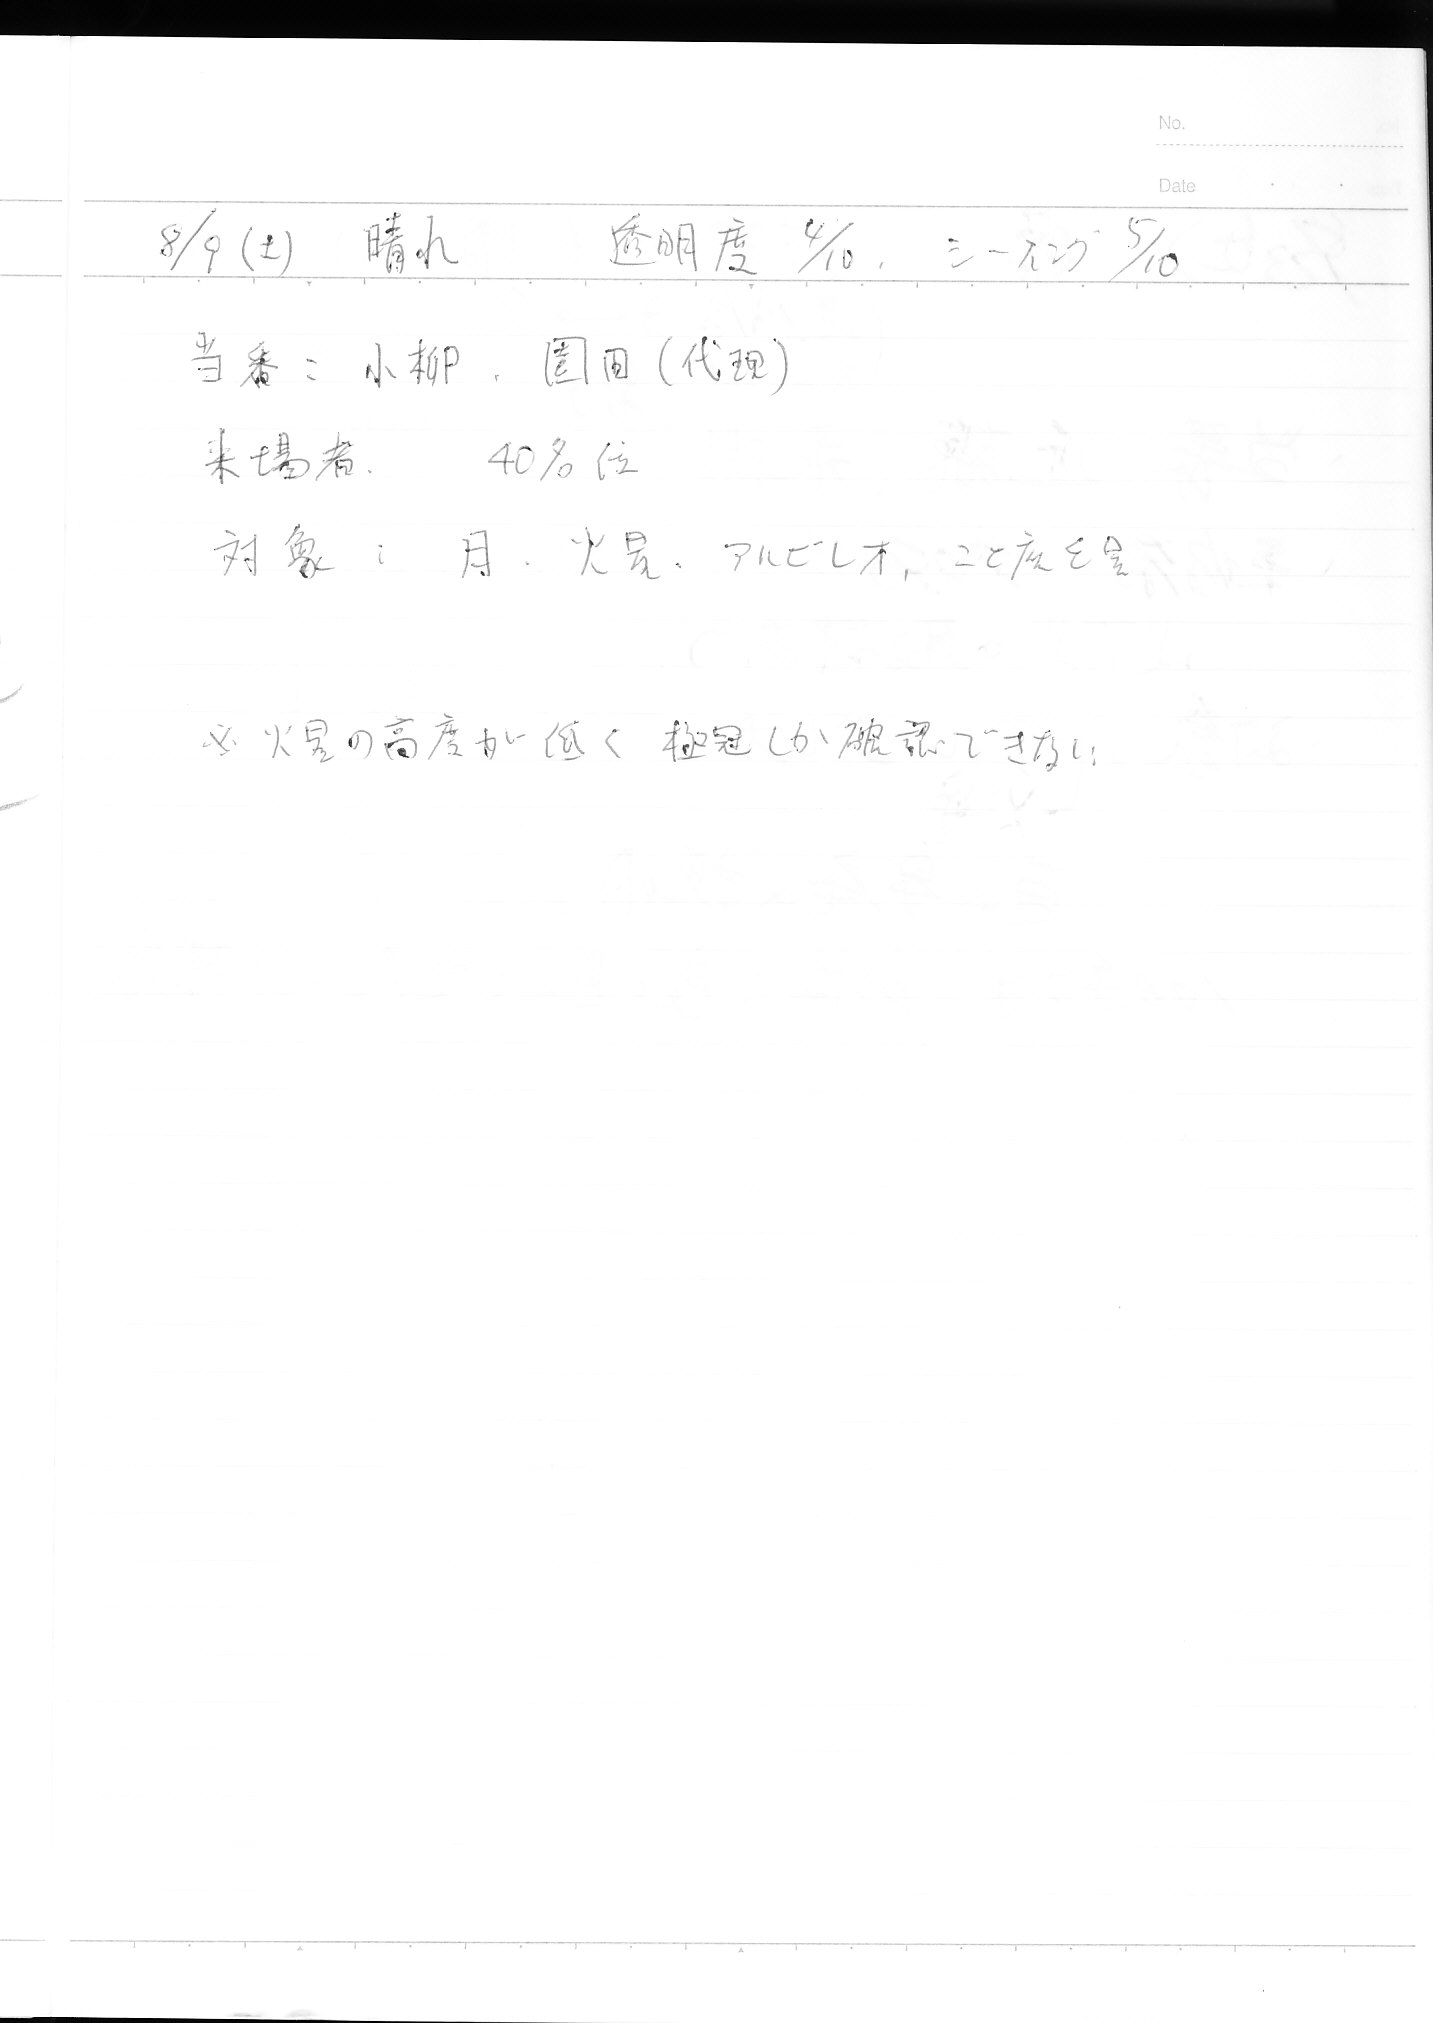 No.
Date
8/9(土) 晴れ 透明度 4/10. シーイング 5/10
当番: 小柳. 園田(代理)
来場者. 40名位
対象: 月. 火星. アルビレオ, こと座ε星
※ 火星の高度が低く 極冠しか確認できない